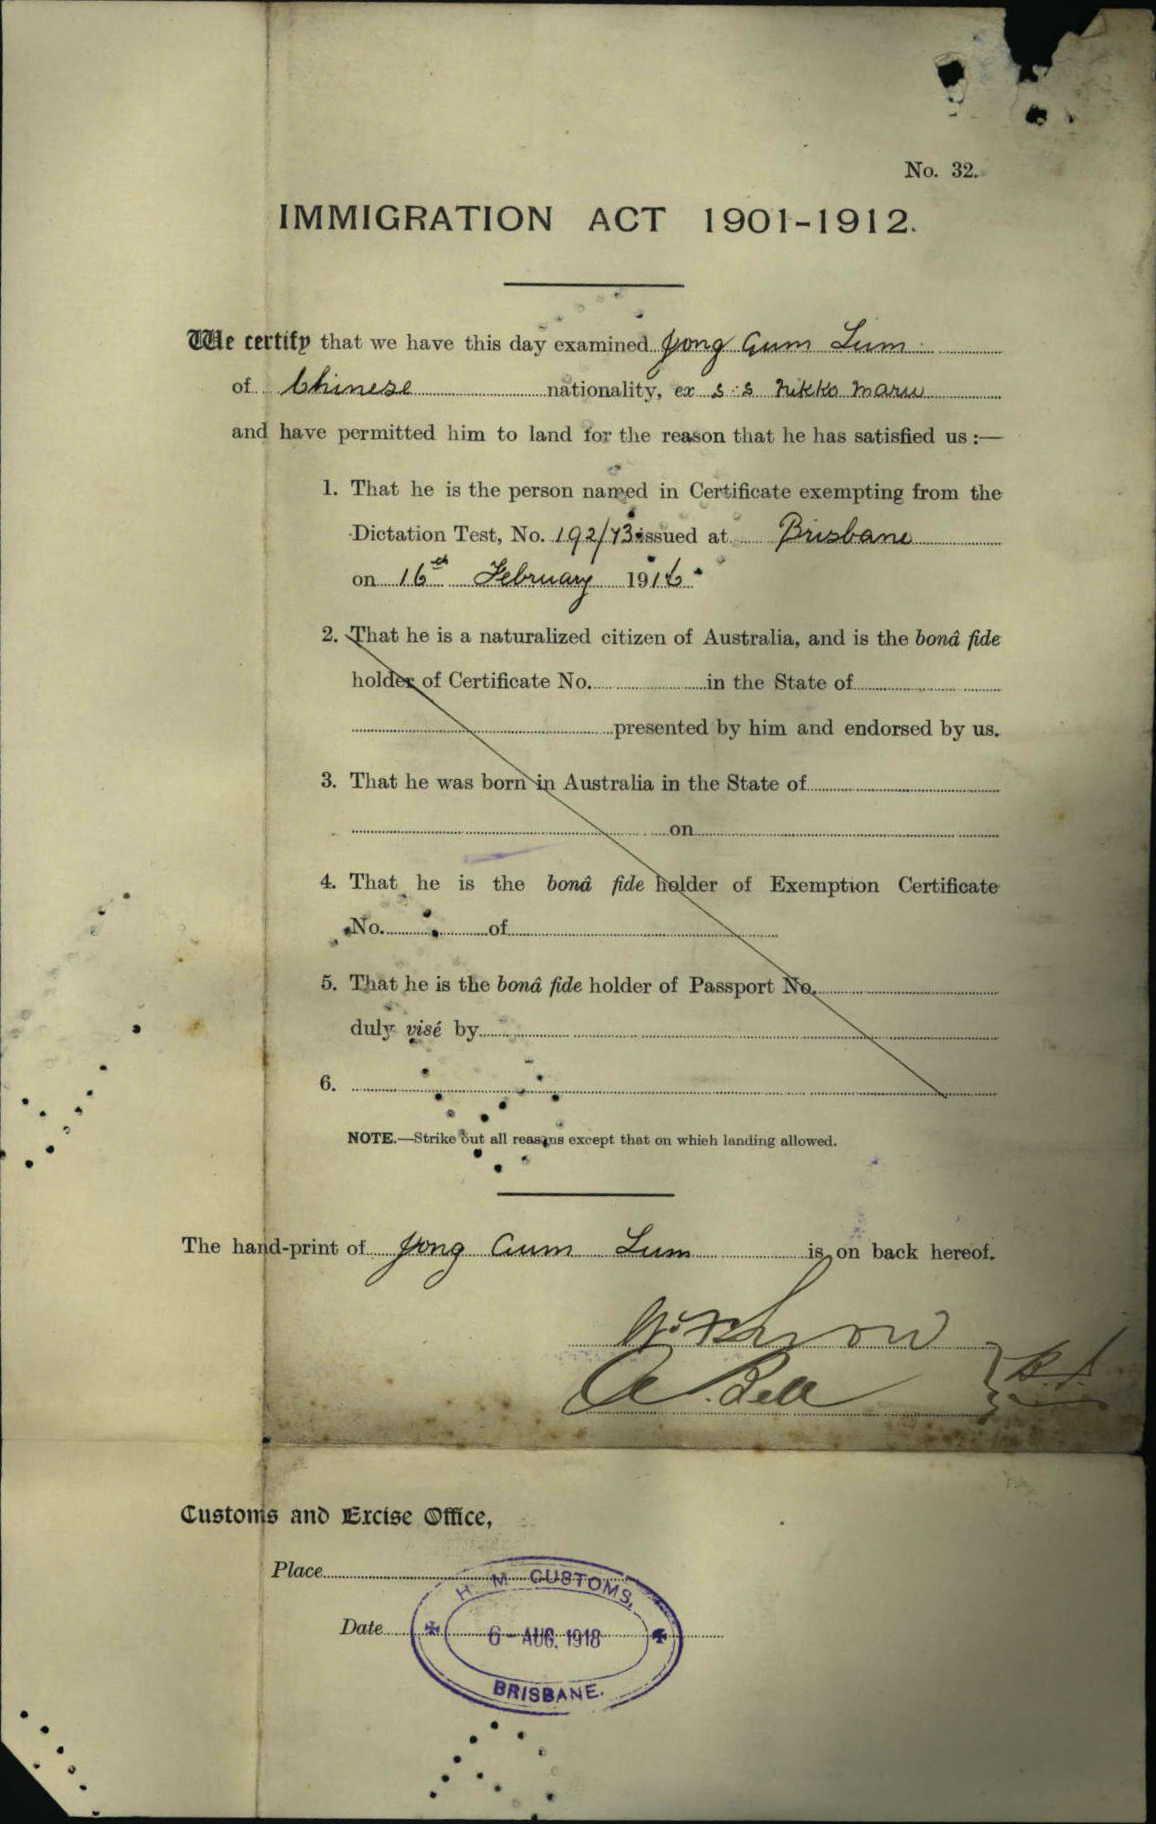 No. 32.
IMMIGRATION ACT 1901-1912.
We certify that we have this day examined Yong Gum Lum
of Chinese nationality, ex s.s Nikko Maru
and have permitted him to land for the reason that he has satisfied us :—
1. That he is the person named in Certificate exempting from the
Dictation Test, No. 192/73 issued at Brisbane
on 16th February 1916
2. That he is a naturalized citizen of Australia, and is the bonâ fide
holder of Certificate No. in the State of
presented by him and endorsed by us.
3. That he was born in Australia in the State of
on
4. That he is the bonâ fide holder of Exemption Certificate
No. of
5. That he is the bonâ fide holder of Passport No.
duly visé by
6.
NOTE.—Strike out all reasons except that on which landing allowed.
The hand-print of Yong Gum Lum is on back hereof.
Bell
Customs and Excise Office,
Place
H. M. CUSTOMS,
Date
6 - AUG. 1918
BRISBANE.